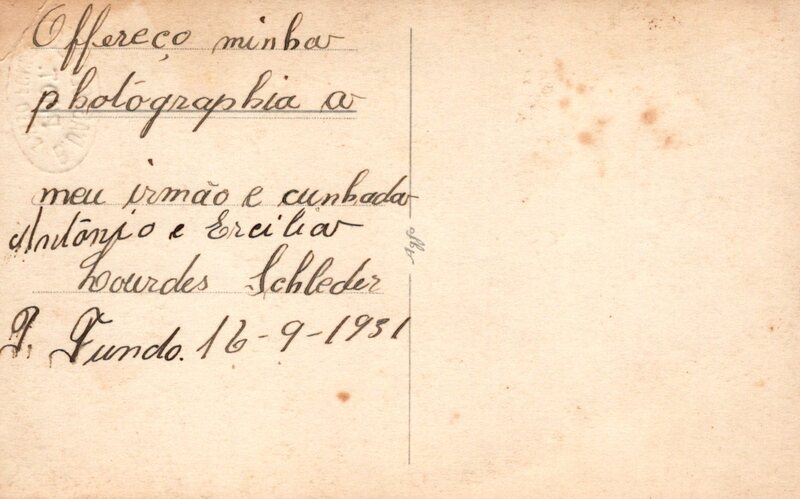 Offereço minha
photógraphia a
meu irmão e cunhada
Antônio e Ercilia
Lourdes Schleder
P. Fundo. 16-9-1931